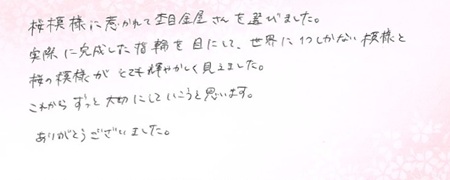 桜模様に惹かれて杢目金屋さんを選びました。
実際に完成した指輪を目にして、世界に1つしかない模様と
桜の模様がとても輝やかしく見えました。
これからずっと大切にしていこうと思います。
ありがとうございました。